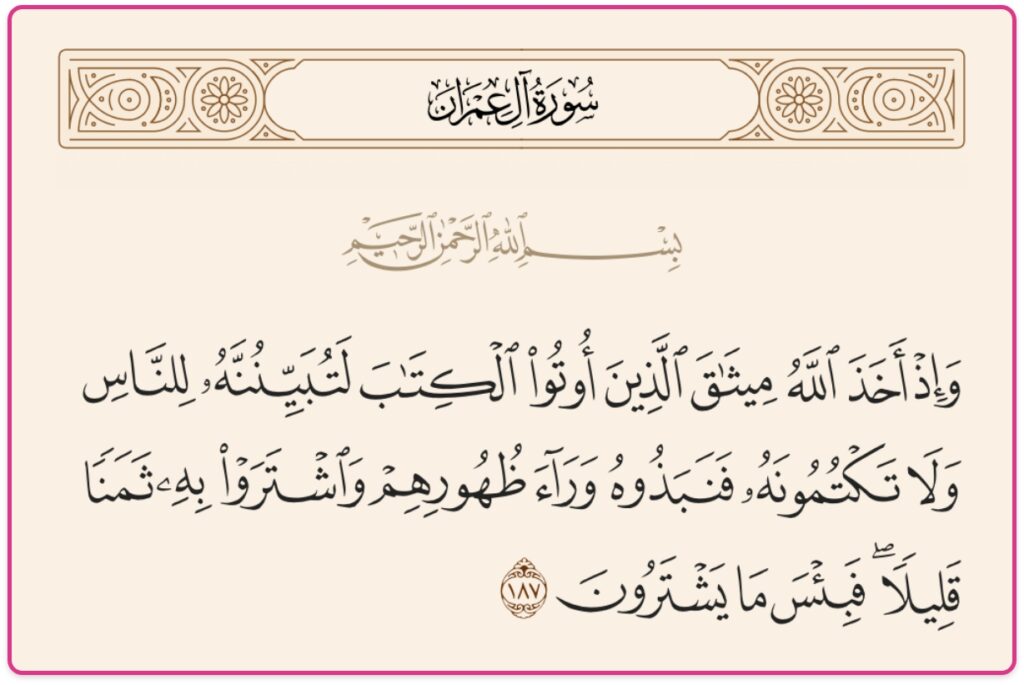 سُورَةُ آلِ عِمْرَانَ
بِسْمِ ٱللَّهِ ٱلرَّحْمَٰنِ ٱلرَّحِيمِ
وَإِذْ أَخَذَ ٱللَّهُ مِيثَٰقَ ٱلَّذِينَ أُوتُوا۟ ٱلْكِتَٰبَ لَتُبَيِّنُنَّهُۥ لِلنَّاسِ
وَلَا تَكْتُمُونَهُۥ فَنَبَذُوهُ وَرَآءَ ظُهُورِهِمْ وَٱشْتَرَوْا۟ بِهِۦ ثَمَنًا
قَلِيلًا ۖ فَبِئْسَ مَا يَشْتَرُونَ ١٨٧